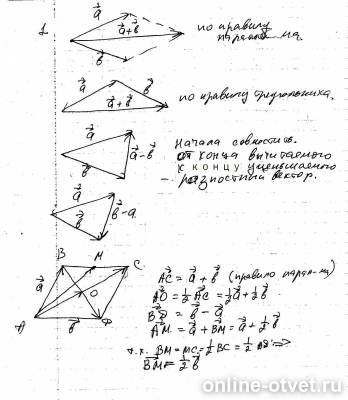 1
a⃗
a⃗+b⃗
b⃗
по правилу
парал-ма
a⃗
b⃗
a⃗+b⃗
по правилу треугольника.
a⃗
a⃗-b⃗
b⃗
Начала совместить.
от конца вычитаемого
к концу уменьшаемого
- разностный вектор.
a⃗
b⃗-a⃗
b⃗
B M C
a⃗
O
A b⃗ D
AC⃗ = a⃗ + b⃗ (правило парал-ма)
AO⃗ = ½ AC⃗ = ½ a⃗ + ½ b⃗
BD⃗ = b⃗ - a⃗
AM⃗ = a⃗ + BM⃗ = a⃗ + ½ b⃗
т.к. BM = MC = ½ BC = ½ AD =>
BM⃗ = ½ b⃗
online-otvet.ru